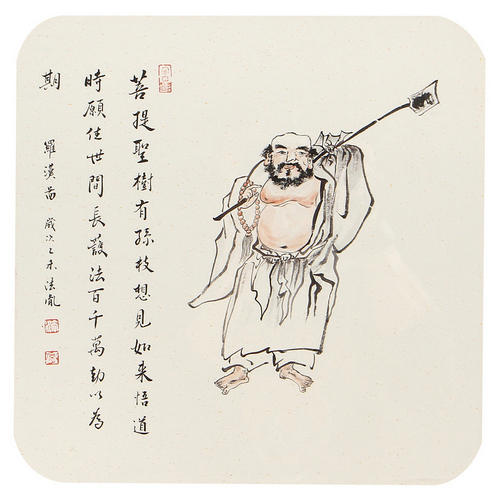 菩提聖樹有孫枝想見如来悟道
時願住世間長護法百千萬劫以為
期
羅漢苗 歲次乙未法胤